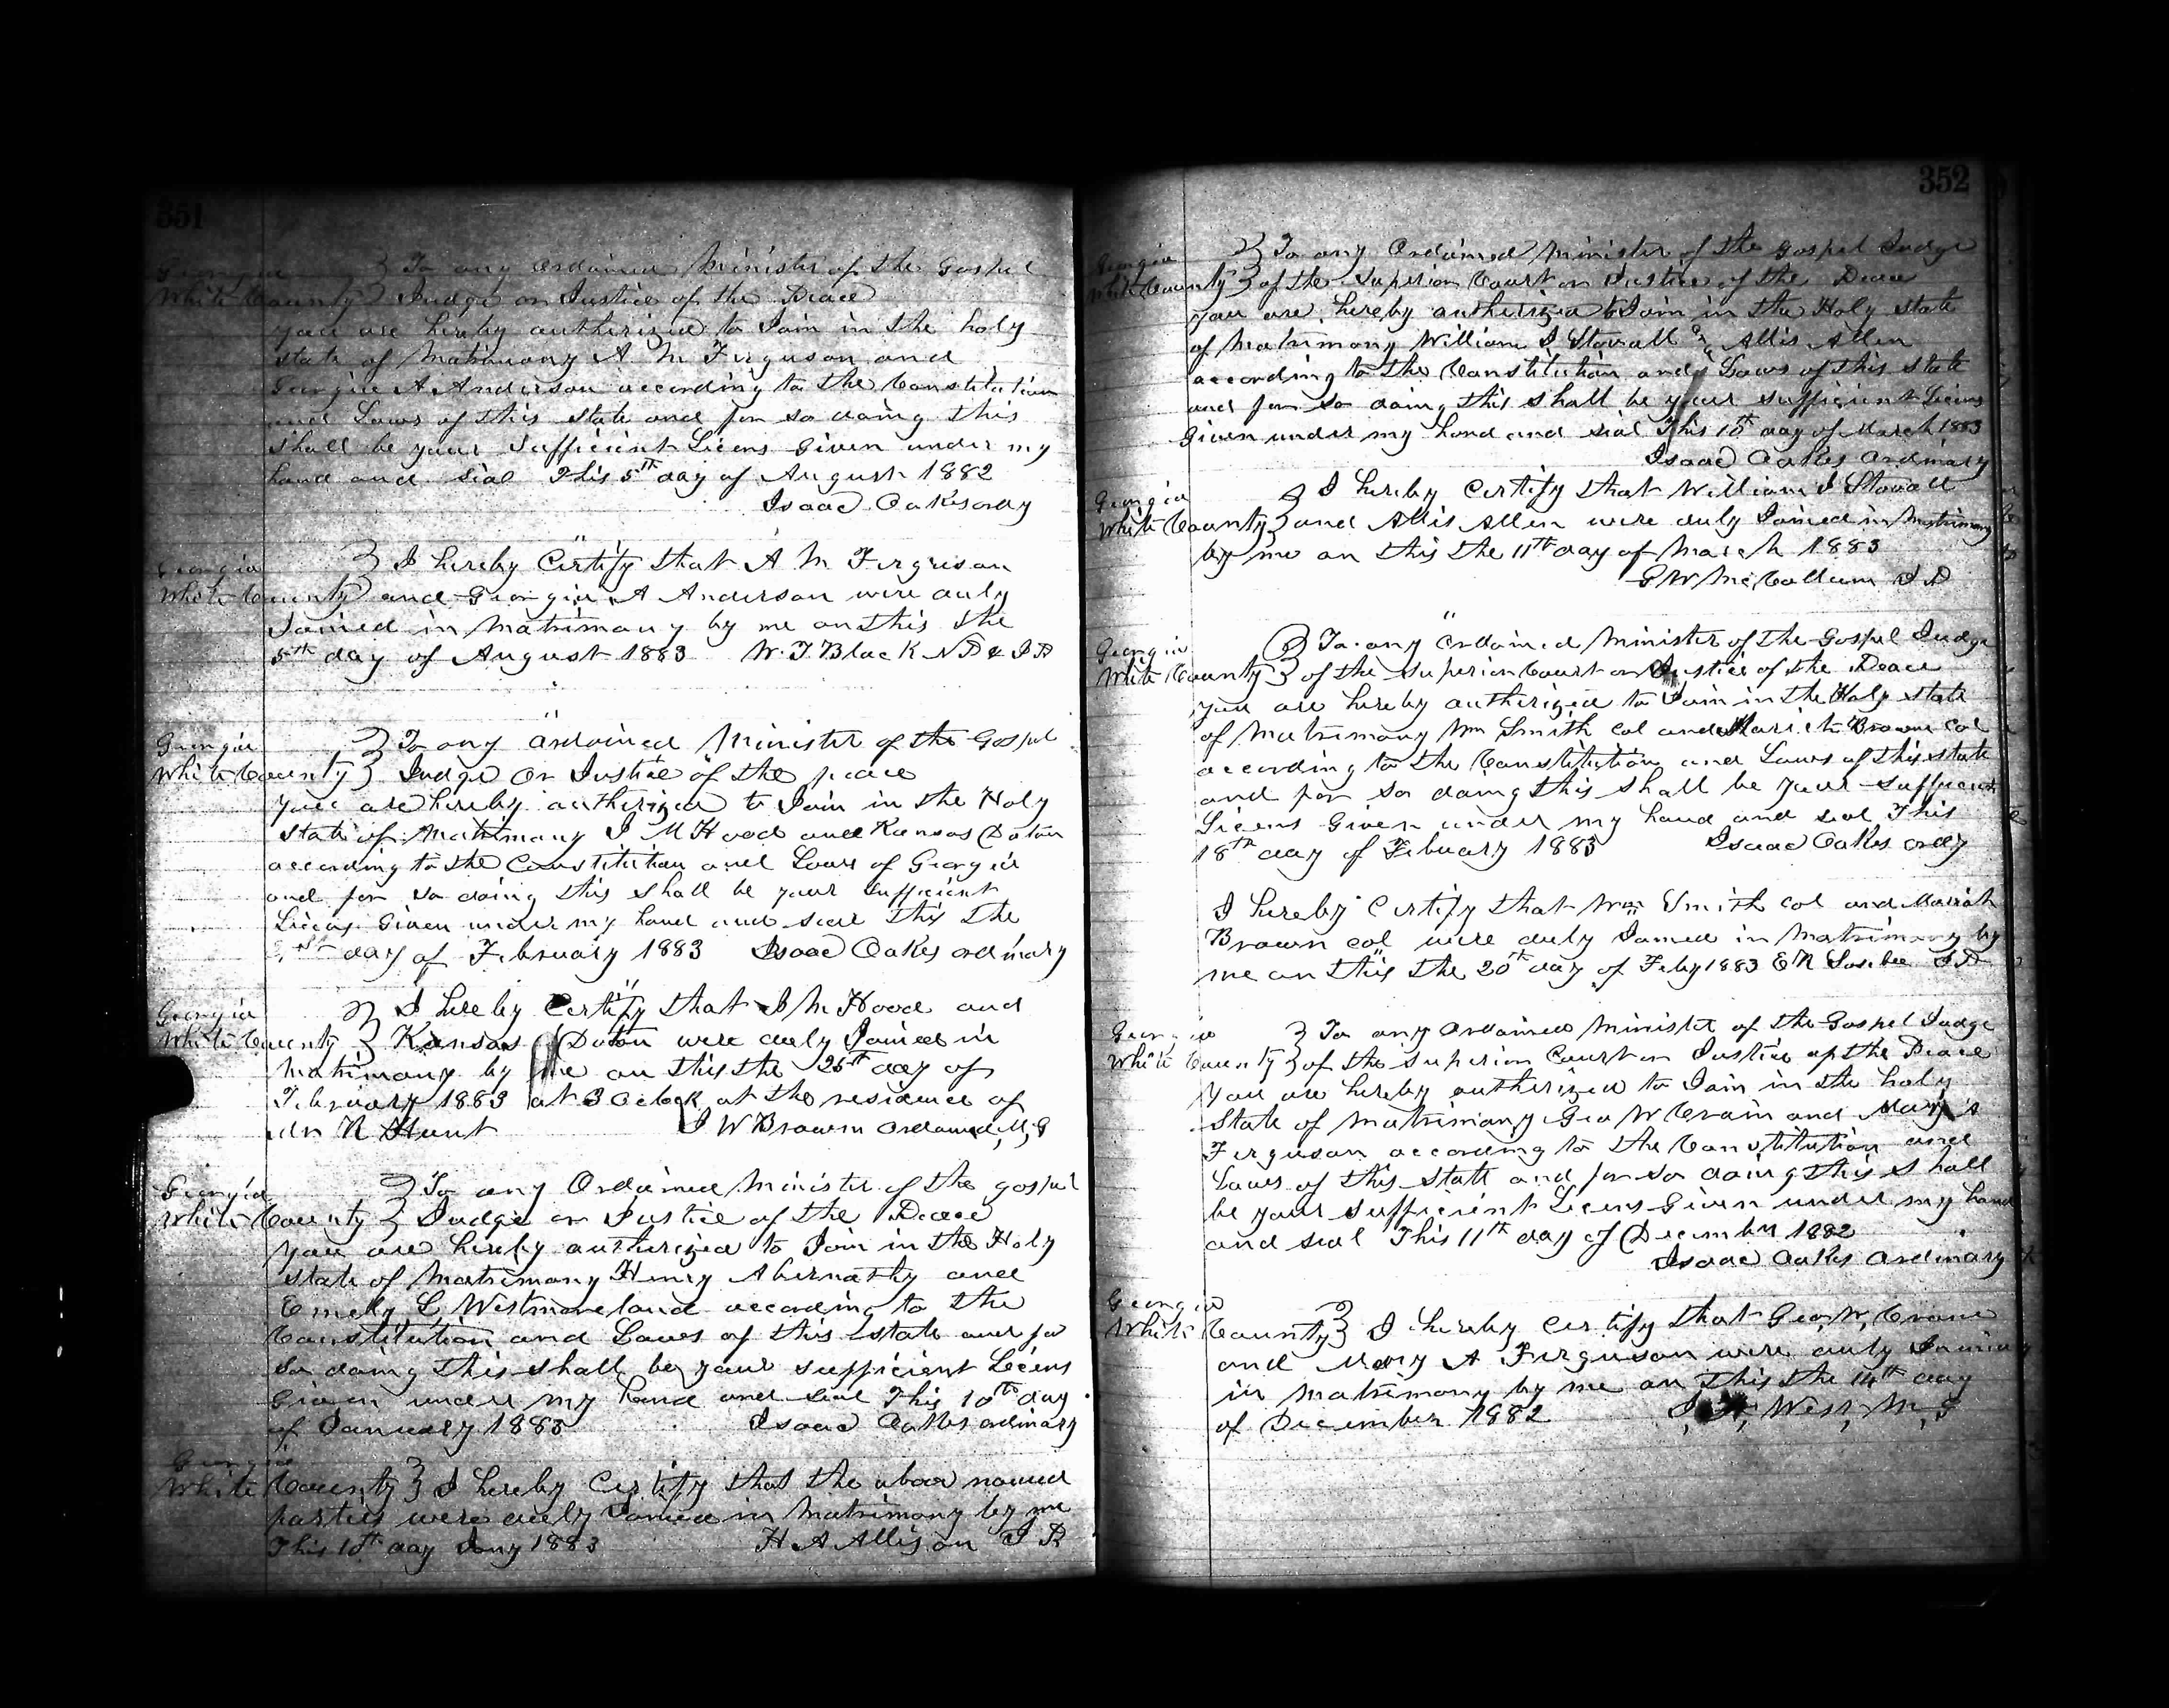 351
Georgia } To any ordained Minister of the Gospel
White County } Judge or Justice of the Peace
you are hereby autherized to Join in the holy
state of Matrimony A M Ferguson and
Georgia A Anderson according to the Constitution
and Laws of this state and for so doing this
shall be your sufficient Licens Given under my
hand and sial This 5th day of August 1882
Isaac Oakes ordy
Georgia } I hereby Certify that A M Ferguson
White County } and Georgia A Anderson were duly
Joined in Matrimony by me on this the
5th day of August 1883 W. T. Black N P & J P
Georgia } To any Ordained Minister of the Gospel
White County } Judge Or Justice of the peace
you are hereby autherized to Join in the Holy
State of Matrimony J M Hood and Kansas Doton
according to the Constitution and Laws of Georgia
and for so doing this shall be your sufficient
Licens Given under my hand and seal this the
day of February 1883 Isaac Oakes ordinary
Georgia } I hereby Certify that J M Hood and
White County } Kansas Doton were duly Joined in
Matrimony by me on this the 25th day of
February 1883 at 3 Oclock at the residence of
Mr R Hunt J W Brown Ordained M, G
Georgia } To any Ordained Minister of the gospel
White County } Judge or Justice of the Peace
You are hereby autherized to Join in the Holy
state of Matrimony Henry Abernathy and
Emely L Westmoreland according to the
Constitution and Laws of this state and for
so doing this shall be your sufficient Licens
Given under my hand and seal This 10th day
of January 1883 Isaac Oakes ordinary
Georgia
White County } I hereby Certify that the above named
parties were duly Joined in Matrimony by me
This 10th day Jany 1883 H A Allison J P
352
Georgia } To any Ordained Minister of the Gospel Judge
White County } of the Superior Court or Justice of the Peace
you are hereby autherized to Join in the Holy state
of Matrimony William J Stovall & Allis Allen
according to the Constitution and Laws of this state
and for so doing this shall be your sufficient Licens
Given under my hand and sial This 10th day of March 1883
Isaac Oakes Ordinary
Georgia } I hereby Certify that William J Stovall
White County } and Allis Allen were duly Joined in Matrimony
by me on this the 11th day of March 1883
G W McCollum J P
Georgia } To any Ordained Minister of the Gospel Judge
White County } of the Superior Court or Justice of the Peace
you are hereby autherized to Join in the Holy state
of Matrimony Wm Smith col and Mariah Brown Col
according to the Constitution and Laws of this state
and for so doing this shall be your sufficient
Licens Given under my hand and seal This
18th day of Febuary 1883 Isaac Oakes ordy
I hereby Certify that Wm Smith col and Mariah
Brown col were duly Joined in Matrimony by
me on this the 20th day of Feby 1883 E N Sosebee J P
Georgia } To any Ordained Minister of the Gospel Judge
White County } of the Superior Court or Justice of the Peace
You are hereby autherized to Join in the holy
State of Matrimony Geo W Crain and Mary A
Ferguson according to the Constitution and
Laws of this State and for so doing this shall
be your sufficient Licens Given under my hand
and seal This 11th day of December 1882
Isaac Oakes Ordinary
Georgia
White County } I hereby Certify that Geo, W, Crain
and Mary A Ferguson were duly Joined
in Matrimony by me on this the 14th day
of December 1882 West, M, G